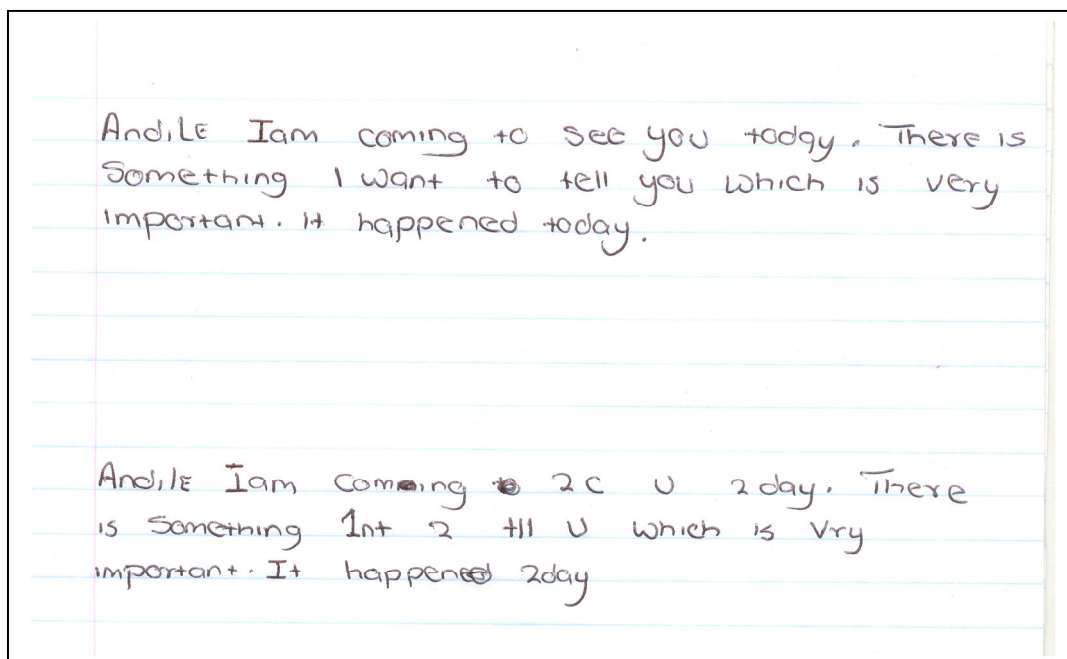 Andile Iam coming to see you today. There is
Something I want to tell you which is very
important. it happened today.
Andile Iam coming 2 c U 2day. There
is Something 1nt 2 tll U which is Vry
important. It happened 2day